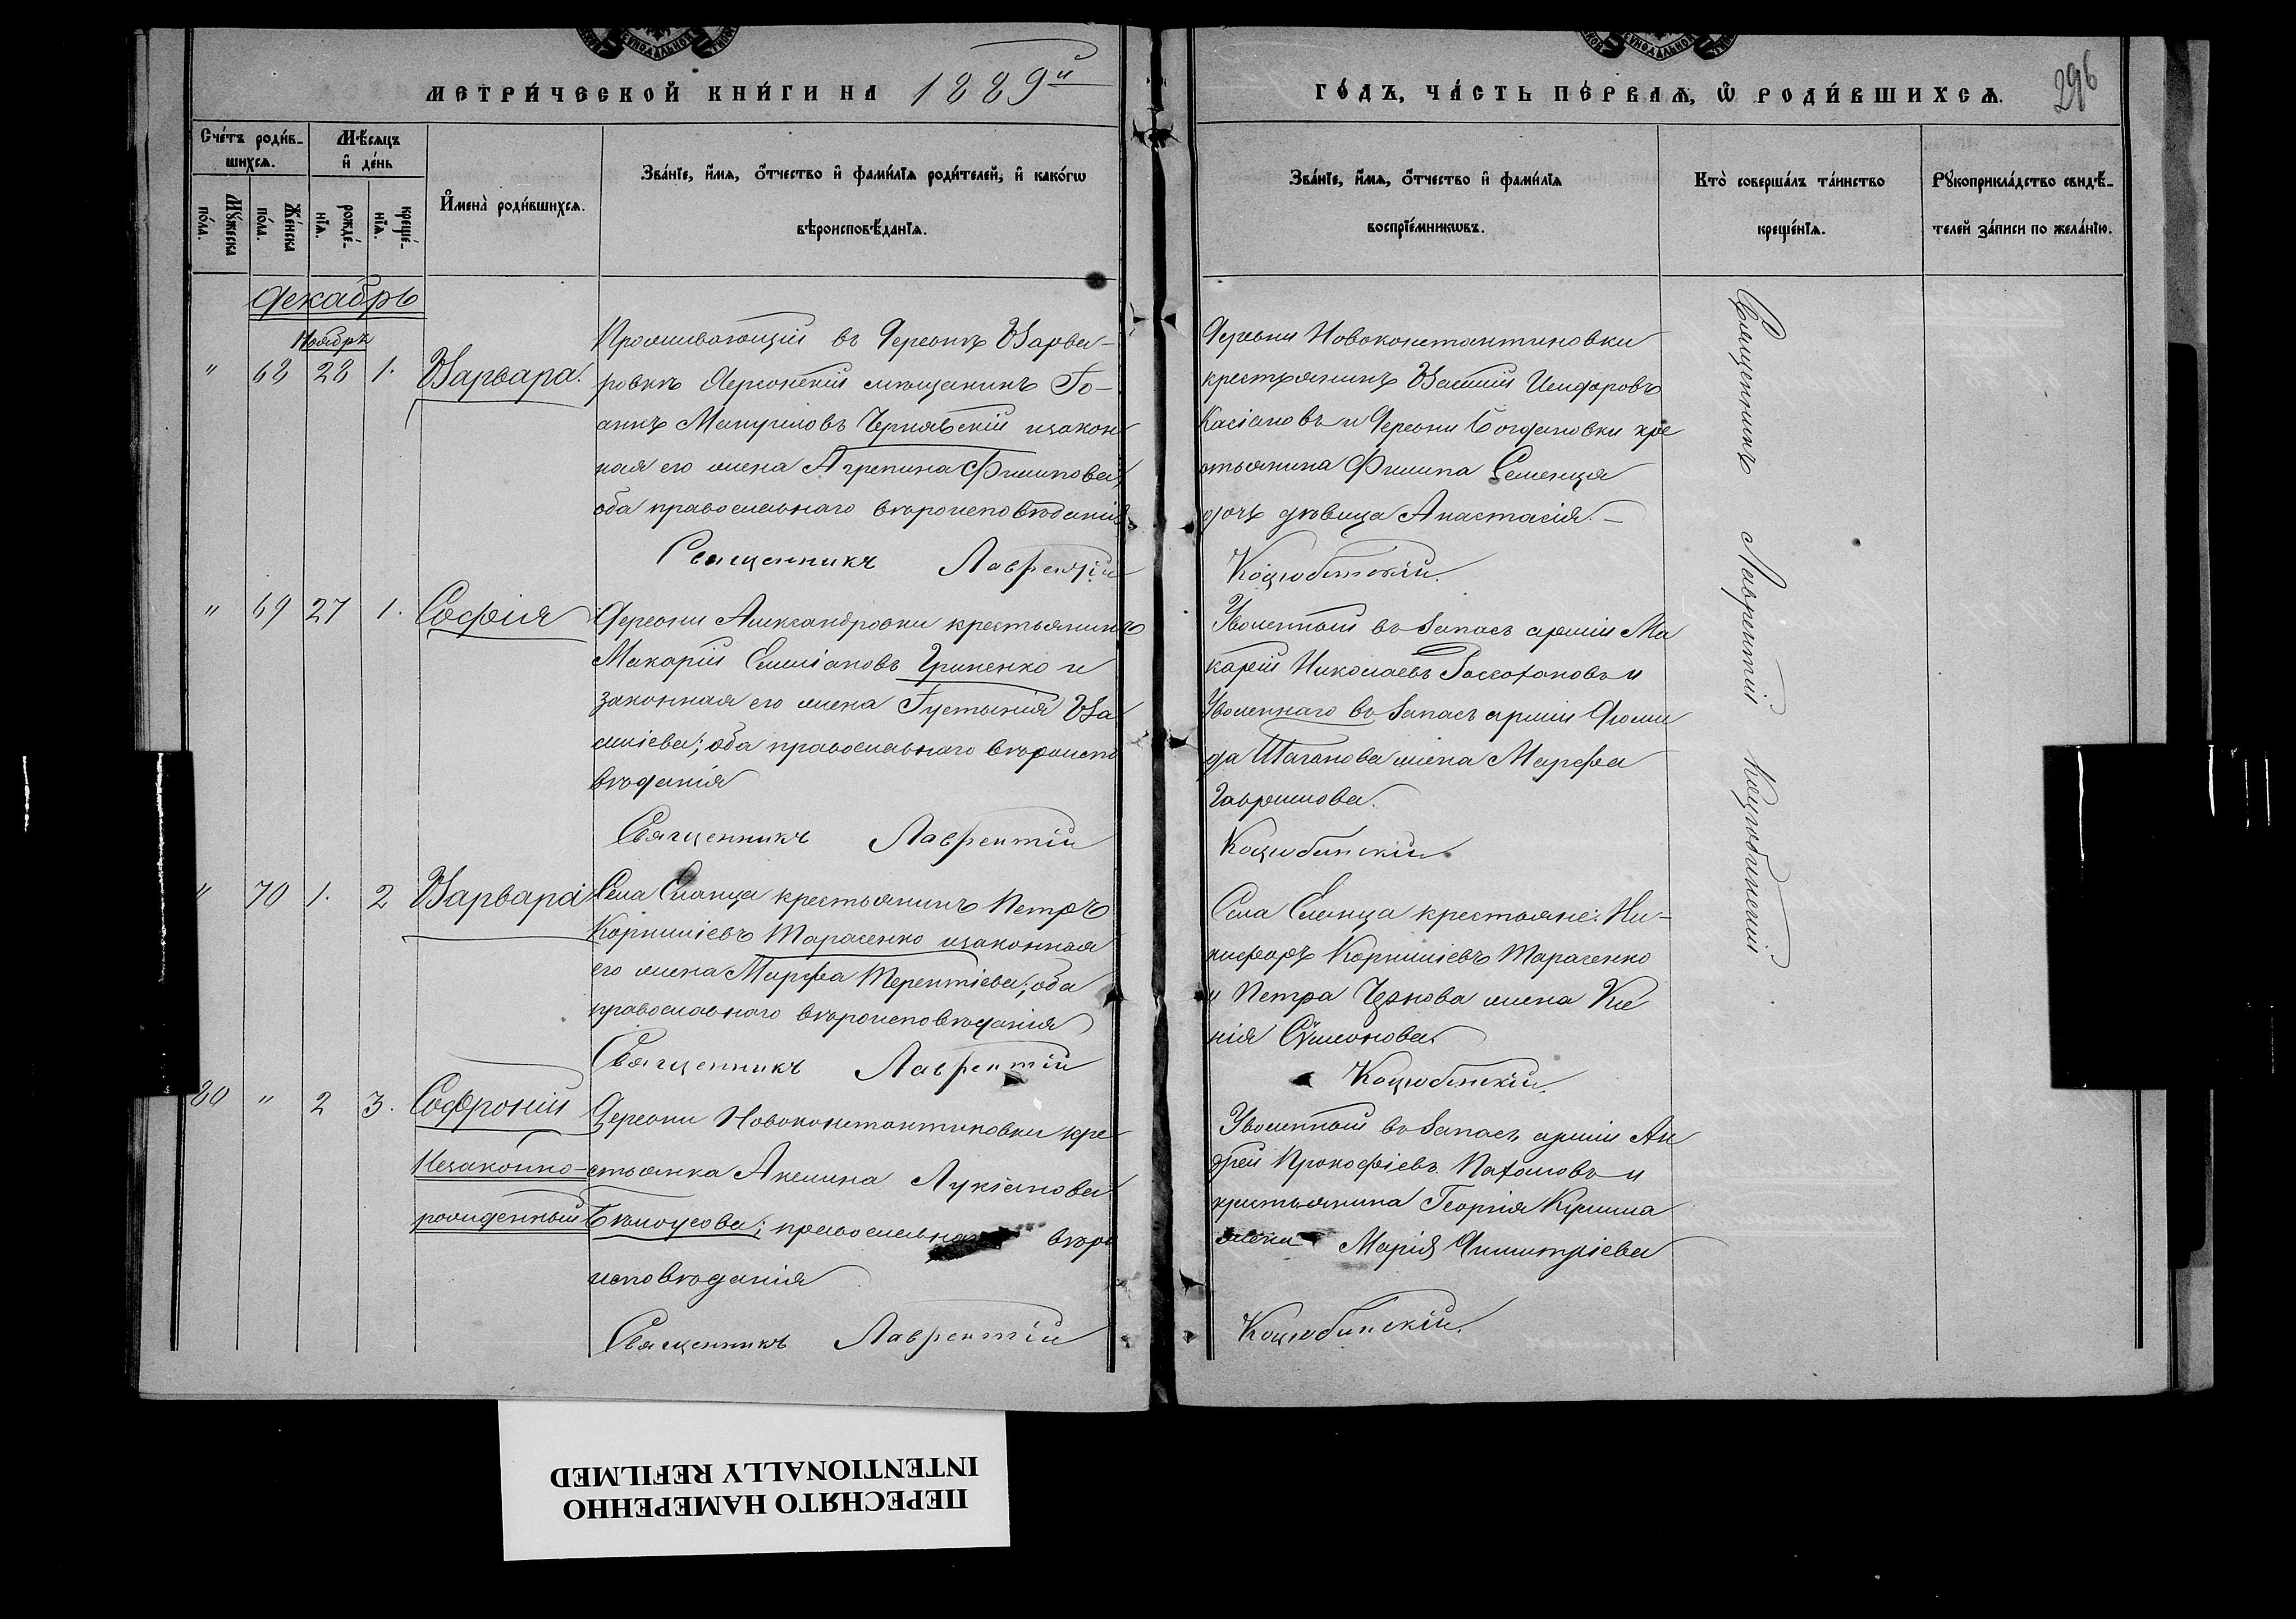 МЕТРИ́ЧЕСКОЙ КНИ́ГИ НА 1889й
ГО́ДЪ, ЧА́СТЬ ПЕ́РВАѦ, Ѽ РОДИ́ВШИХСѦ.
296
Сче́тъ роди́в-
шихсѧ.
Мѣ́сѧцъ
и҆ де́нь
Мꙋ́жеска
по́ла.
Же́нска
по́ла.
рожде́-
нїѧ.
креще́-
нїѧ.
И҆мена̀ роди́вшихсѧ.
Зва́нїе, и҆́мѧ, ѻ҆́тчество и҆ фами́лїѧ роди́телей, и҆ како́гѡ
вѣроисповѣ́данїѧ.
Зва́нїе, и҆́мѧ, ѻ҆́тчество и҆ фами́лїѧ
воспрїе́мникѡвъ.
Кто̀ соверша́лъ та́инство
креще́нїѧ.
Рꙋкоприкла́дство свидѣ́-
телей за́писи по жела́нїю.
Декабрь
Ноябрь
" 68 28 1. Варвара.
Проживающій въ деревнѣ Варва-
ровкѣ Херсонскій мѣщанинъ Іо-
аннъ Мануиловъ Чернявскій и закон
ная его жена Агрепина Филипова,
оба православнаго вѣроисповѣданія
Священникъ Лаврентій
Деревни Новоконстантиновки
крестьянинъ Василій Исидоровъ
Касіановъ и деревни Богдановки кре
стьянина Филипа Семенца
дочь дѣвица Анастасія.-
Коцюбинскій.
" 69 27 1. Софія
Деревни Александровки крестьянинъ
Макарій Емиліановъ Гриненко и
законная его жена Густынія Ва
силіева; оба православнаго вѣроиспо
вѣданія
Священникъ Лаврентій
Уволенный въ запасъ арміи Ма
карій Николаевъ и
Уволеннаго въ запасъ арміи Діоми
да Шаганова жена Марфа
Гавриилова.
Коцюбинскій
" 70 1. 2 Варвара
Села Еланца крестьянинъ Петръ
Корниліевъ Тарасенко и законная
его жена Марфа Терентіева; оба
православнаго вѣроисповѣданія
Священникъ Лаврентій
Села Еланца крестьяне: Ни-
кифоръ Корниліевъ Тарасенко
и Петра жена Ксе
нія Симеонова
Коцюбинскій.
80 " 2 3. Софроній
Незаконно-
рожденный
Деревни Новоконстантиновки кре
стьянка Акилина Лукіанова
Бѣлоусова; православна вѣро
исповѣданія
Священникъ Лаврентій
Уволенный въ запасъ арміи Ан
дрей Прокофіевъ и
крестьянина Георгія
жена Марія Димитріева
Коцюбинскій.
Священникъ Лаврентій Коцюбинскій
ПЕРЕСНЯТО НАМЕРЕННО
INTENTIONALLY REFILMED